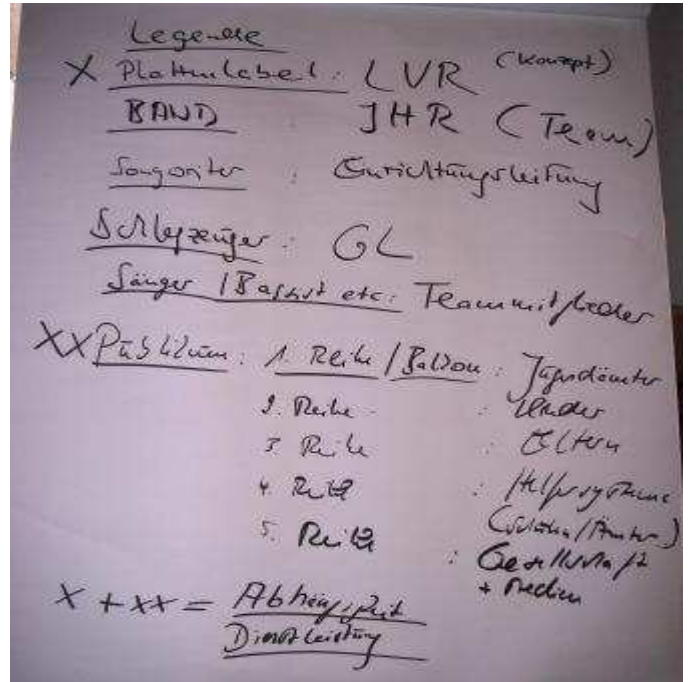 Legende
X Plattenlabel : LVR (Konzept)
BAND JHR (Team)
Songwriter : Einrichtungsleitung
Schlagzeuger : GL
Sänger / Bassist etc : Teammitglieder
XX Publikum : 1. Reihe / Balkon : Jugendämter
2. Reihe : Kinder
3 Reihe : Eltern
4. Reihe : Helfersysteme
(Schulen / Ämter)
5. Reihe : Gesellschaft
+ Medien
X + XX = Abhängigkeit
Dienstleistung